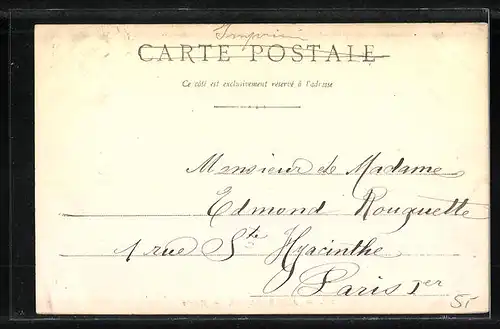 Imprimé
CARTE POSTALE
Ce côté est exclusivement réservé à l'adresse
Monsieur de Madame
Edmond Rouguette
1 rue Ste Hyacinthe
Paris Ier